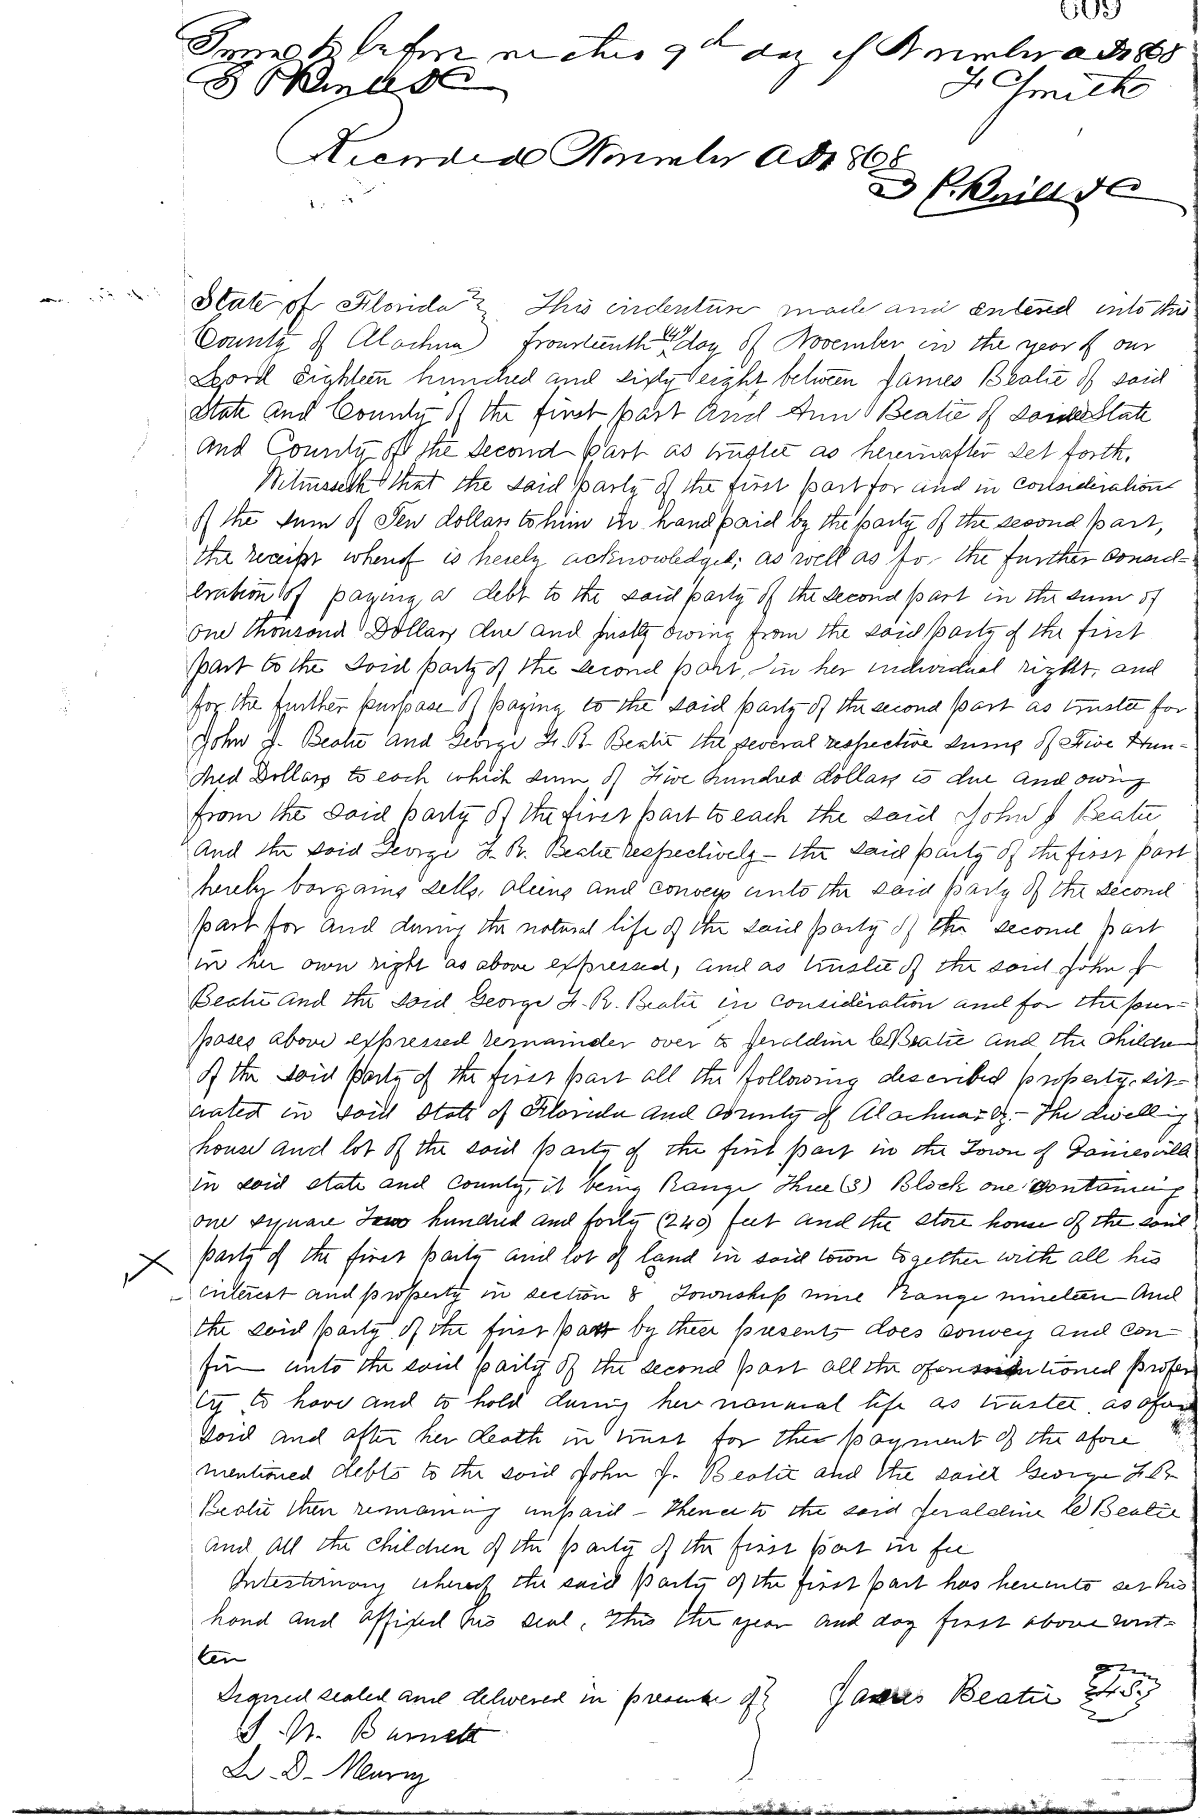 609
Sworn to before me this 9th day of November AD 1868
F. C. Smith
Recorded November AD 1868
State of Florida } This indenture made and entered into this
County of Alachua } frourteenth (14) day of November in the year of our
Lord Eighteen hundred and sixty eight, between James Beatie of said
State and County of the first part and Ann Beatie of said State
and County of the second part as trustee as hereinafter set forth.
Witnesseth that the said party of the first part for and in consideration
of the sum of Ten dollars to him in hand paid by the party of the second part,
the receipt whereof is hereby acknowledged; as well as for the further consid=
eration of paying a debt to the said party of the second part in the sum of
one thousand Dollars due and justly owing from the said party of the first
part to the said party of the second part, in her individual right, and
for the further purpose of paying to the said party of the second part as trustee for
John J. Beatie and George F. R. Beatie the several respective sums of Five Hun=
dred Dollars to each which sum of Five hundred dollars is due and owing
from the said party of the first part to each the said John J Beatie
and the said George F. R. Beatie respectively - the said party of the first part
hereby bargains sells, aliens and conveys unto the said party of the second
part for and during the natural life of the said party of the second part
in her own right as above expressed, and as trustee of the said John J
Beatie and the said George F. R. Beatie in consideration and for the pur=
poses above expressed remainder over to Jeraldine C Beatie and the children
of the said party of the first part all the following described property, sit=
uated in said state of Florida and county of Alachua viz - The dwelling
house and lot of the said party of the first part in the Town of Gainesville
in said state and county, it being Range Three (3) Block one containing
one square Two hundred and forty (240) feet and the store house of the said
party of the first party and lot of land in said town together with all his
interest and property in section 8 Township nine Range nineteen And
the said party of the first part by these presents does convey and con=
firm unto the said party of the second part all the aforementioned proper
ty to have and to hold during her nanural life as trustee as afore
said and after her death in trust for the payment of the afore
mentioned debts to the said John J. Beatie and the said George F. R
Beatie then remaining unpaid - thence to the said Jeraldine C Beatie
and all the children of the party of the first part in fee
Intestimony whereof the said party of the first part has hereunto set his
hand and affixed his seal, this the year and day first above writ=
ten
Signed sealed and delivered in presence of } James Beatie {L.S.}
S. N. Burnett
L. D. Meurry